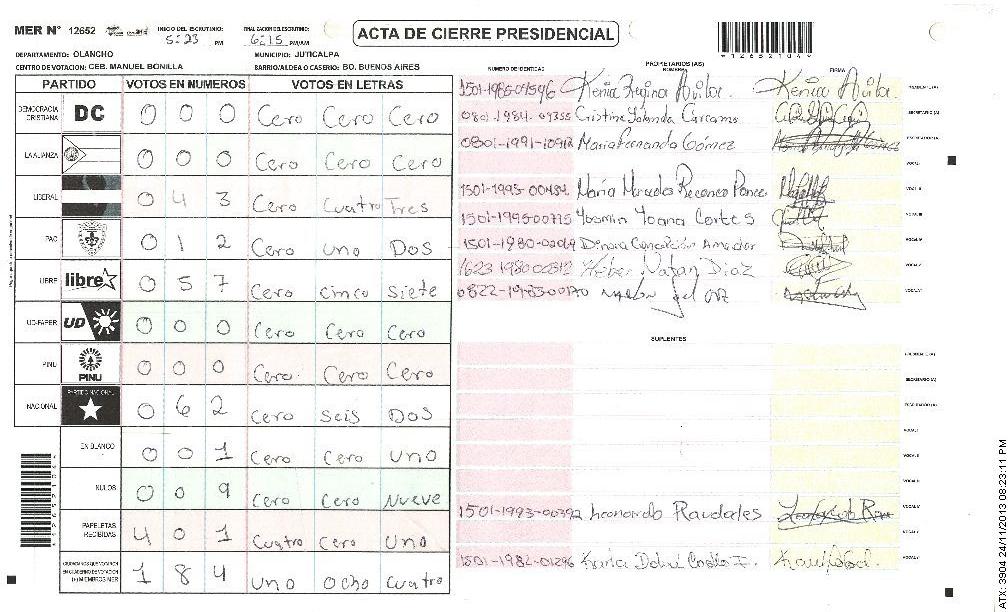 MER Nº 12652
INICIO DEL ESCRUTINIO: 5:23 PM
FINALIZACION DEL ESCRUTINIO: 6:15 PM/AM
ACTA DE CIERRE PRESIDENCIAL
DEPARTAMENTO: OLANCHO
MUNICIPIO: JUTICALPA
CENTRO DE VOTACION: CEB. MANUEL BONILLA
BARRIO/ALDEA O CASERIO: BO. BUENOS AIRES
PARTIDO VOTOS EN NUMEROS VOTOS EN LETRAS
DEMOCRACIA CRISTIANA DC 0 0 0 Cero Cero Cero
LA ALIANZA 0 0 0 Cero Cero Cero
LIBERAL 0 4 3 Cero Cuatro Tres
PAC 0 1 2 Cero uno Dos
LIBRE libre 0 5 7 Cero cinco siete
UD-FAPER UD 0 0 0 Cero Cero Cero
PINU PINU 0 0 0 Cero Cero Cero
NACIONAL PARTIDO NACIONAL 0 6 2 Cero seis Dos
EN BLANCO 0 0 1 Cero Cero uno
NULOS 0 0 9 Cero Cero Nueve
PAPELETAS RECIBIDAS 4 0 1 Cuatro Cero Uno
CIUDADANOS QUE VOTARON EN CUADERNO DE VOTACION (+) MIEMBROS MER 1 8 4 uno Ocho Cuatro
PROPIETARIOS (AS)
NUMERO DE IDENTIDAD NOMBRE FIRMA
1501-1985-01596 Kenia Regina Avila. Kenia Avila. PRESIDENTE (A)
0801-1984-09355 Cristina Yolanda Carcamo SECRETARIO (A)
0801-1991-10912 Maria Fernanda Gómez ESCRUTADOR (A)
VOCAL I
1501-1995-00434 Maria Mercedes Ponce VOCAL II
1501-1995-00775 Yosmin Yoana Cortes VOCAL III
1501-1980-02019 Dinora Concepción Amador VOCAL IV
1623 1980 00312 Heber Natan Diaz VOCAL V
0822-1983-00170 VOCAL VI
SUPLENTES
PRESIDENTE (A)
SECRETARIO (A)
ESCRUTADOR (A)
VOCAL I
VOCAL II
VOCAL III
1501-1993-00392 Leonardo Raudales
1501-1982-01296 Karla
*12652104*
ATX: 3904 24/11/2013 08:23:11 PM